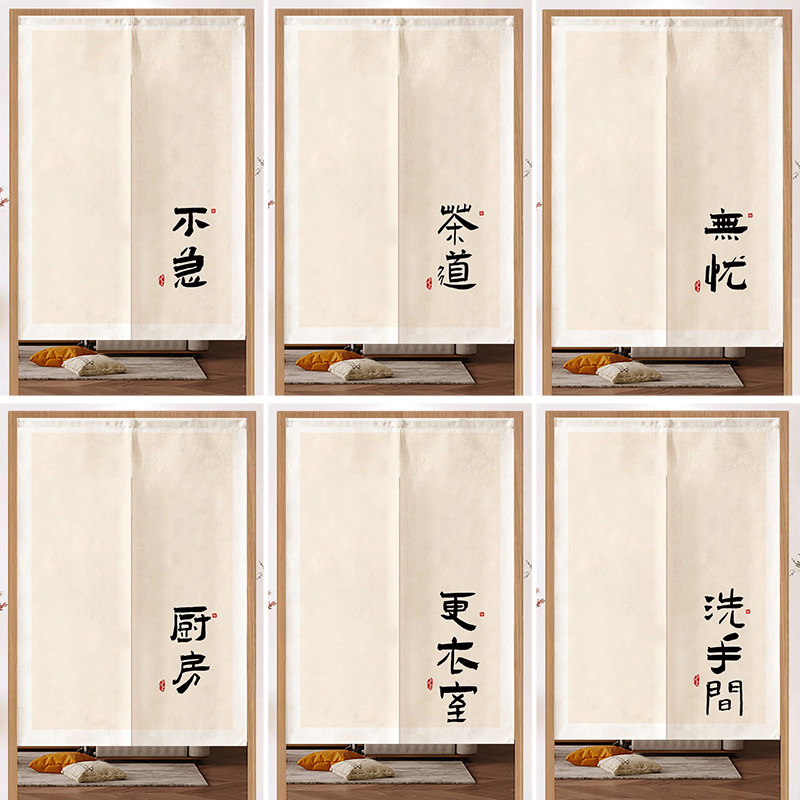 不急
茶道
無忧
厨房
更衣室
洗手間